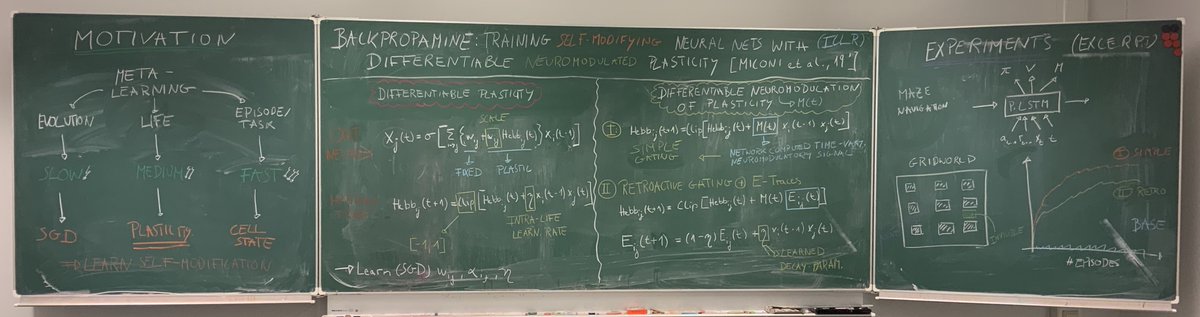 MOTIVATION
META-
LEARNING
EVOLUTION
LIFE
EPISODE/
TASK
SLOW
MEDIUM
FAST
SGD
PLASTICITY
CELL
STATE
→ LEARN SELF-MODIFICATION
BACKPROPAMINE: TRAINING SELF-MODIFYING NEURAL NETS WITH (ICLR)
DIFFERENTIABLE NEUROMODULATED PLASTICITY [MICONI et al., 19']
DIFFERENTIABLE PLASTICITY
SCALE
x_j(t) = σ[Σ {w_ij + α_ij Hebb_ij(t)} x_i(t-1)]
FIXED PLASTIC
Hebb_ij(t+1) = Clip[Hebb_ij(t) + η x_i(t-1) x_j(t)]
INTRA-LIFE
LEARN. RATE
[-1,1]
→ Learn (SGD) w_ij, α_ij, η
DIFFERENTIABLE NEUROMODULATION
OF PLASTICITY → M(t)
I Hebb_ij(t+1) = Clip[Hebb_ij(t) + M(t) x_i(t-1) x_j(t)]
SIMPLE
GATING
← NETWORK COMPUTED TIME-VARY.
NEUROMODULATORY SIGNAL
II RETROACTIVE GATING + E-Traces
Hebb_ij(t+1) = Clip[Hebb_ij(t) + M(t) E_ij(t)]
E_ij(t+1) = (1-η) E_ij(t) + η x_i(t-1) x_j(t)
LEARNED
DECAY-PARAM.
EXPERIMENTS (EXCERPT)
π V M
MAZE
NAVIGATION
P.LSTM
GRIDWORLD
I SIMPLE
II RETRO
BASE
# EPISODES